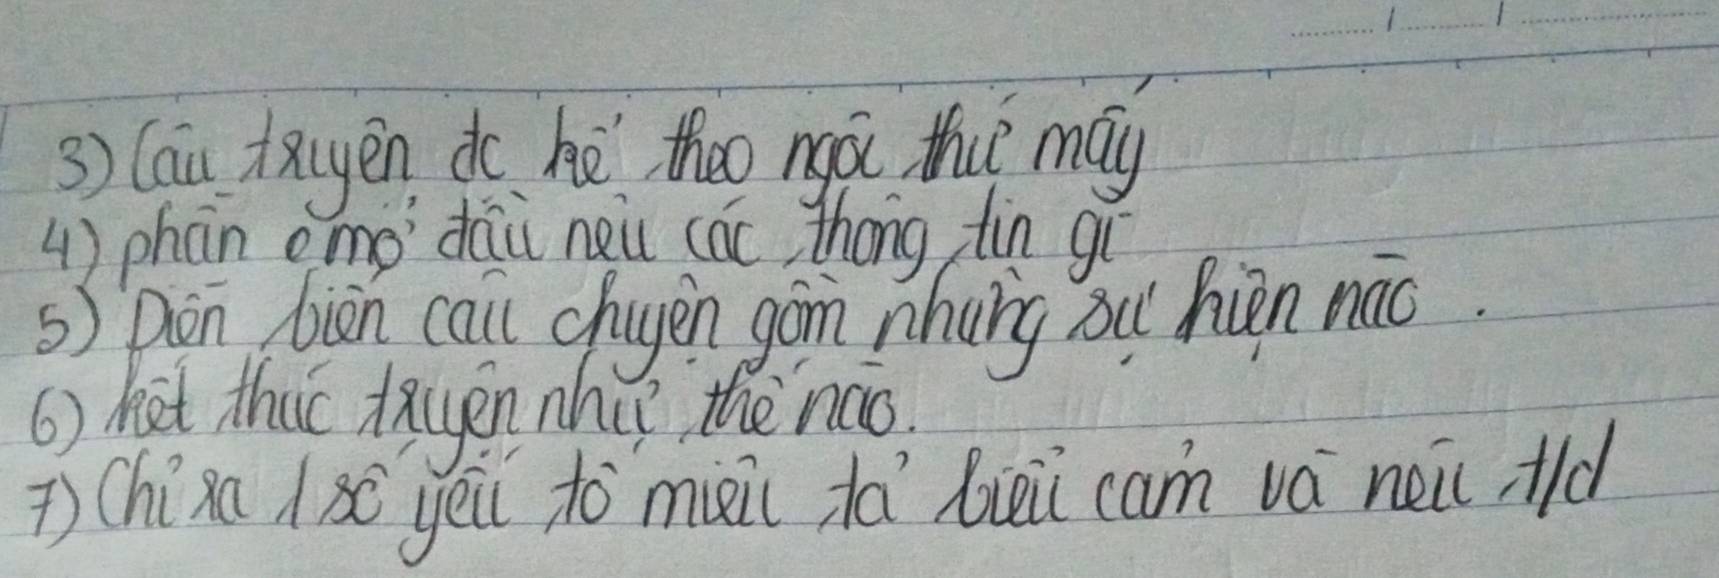 3) Câu truyện đc kể theo ngôi thứ mấy
4) phần ở mở đầu nêu các thông tin gì
5) Diễn biến câu chuyện gồm những sự hiện nào.
6) kết thúc truyện như thế nào.
7) Chỉ ra 1 số yếu tố miêu tả biểu cảm và nêu t/d